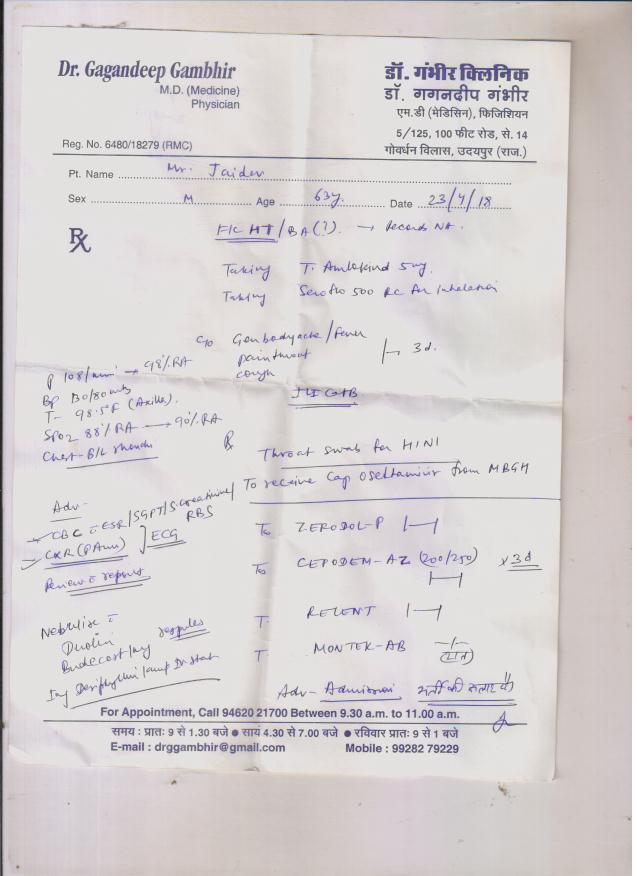 Dr. Gagandeep Gambhir
M.D. (Medicine)
Physician
Reg. No. 6480/18279 (RMC)
डॉ. गंभीर क्लिनिक
डॉ. गगनदीप गंभीर
एम.डी (मेडिसिन), फिजिशियन
5/125, 100 फीट रोड, से. 14
गोवर्धन विलास, उदयपुर (राज.)
Pt. Name Mr. Jaidev
Sex M Age 63y. Date 23/4/18
Rx
F/C HT/BA(?) → Records NA.
Taking T. Amlokind 5mg.
Taking Seroflo 500 RC
C/o Gen bodyache/fever
pain throat
cough
3d.
P 108/min → 98% RA
BP 130/80
T- 98.5°F (Axilla).
SpO2 88% RA → 90% RA
Chest - B/L rhonchi
Rx
Throat swab for H1N1
To receive Cap Oseltamivir from MBGH
Adv-
CBC c ESR/SGPT/S.creatinine/RBS
CXR (PA view)
ECG
Review c reports
T. ZERODOL-P
T. CEPODEM-AZ (200/250) x 3d
T. RELENT
T. MONTEK-AB
(रात)
Nebulise c
Duolin
Budecort respules
Inj Deriphyllin 1 amp stat
Adv - Admission भर्ती की सलाह दी
For Appointment, Call 94620 21700 Between 9.30 a.m. to 11.00 a.m.
समय : प्रातः 9 से 1.30 बजे ● सायं 4.30 से 7.00 बजे ● रविवार प्रातः 9 से 1 बजे
E-mail : drggambhir@gmail.com Mobile : 99282 79229